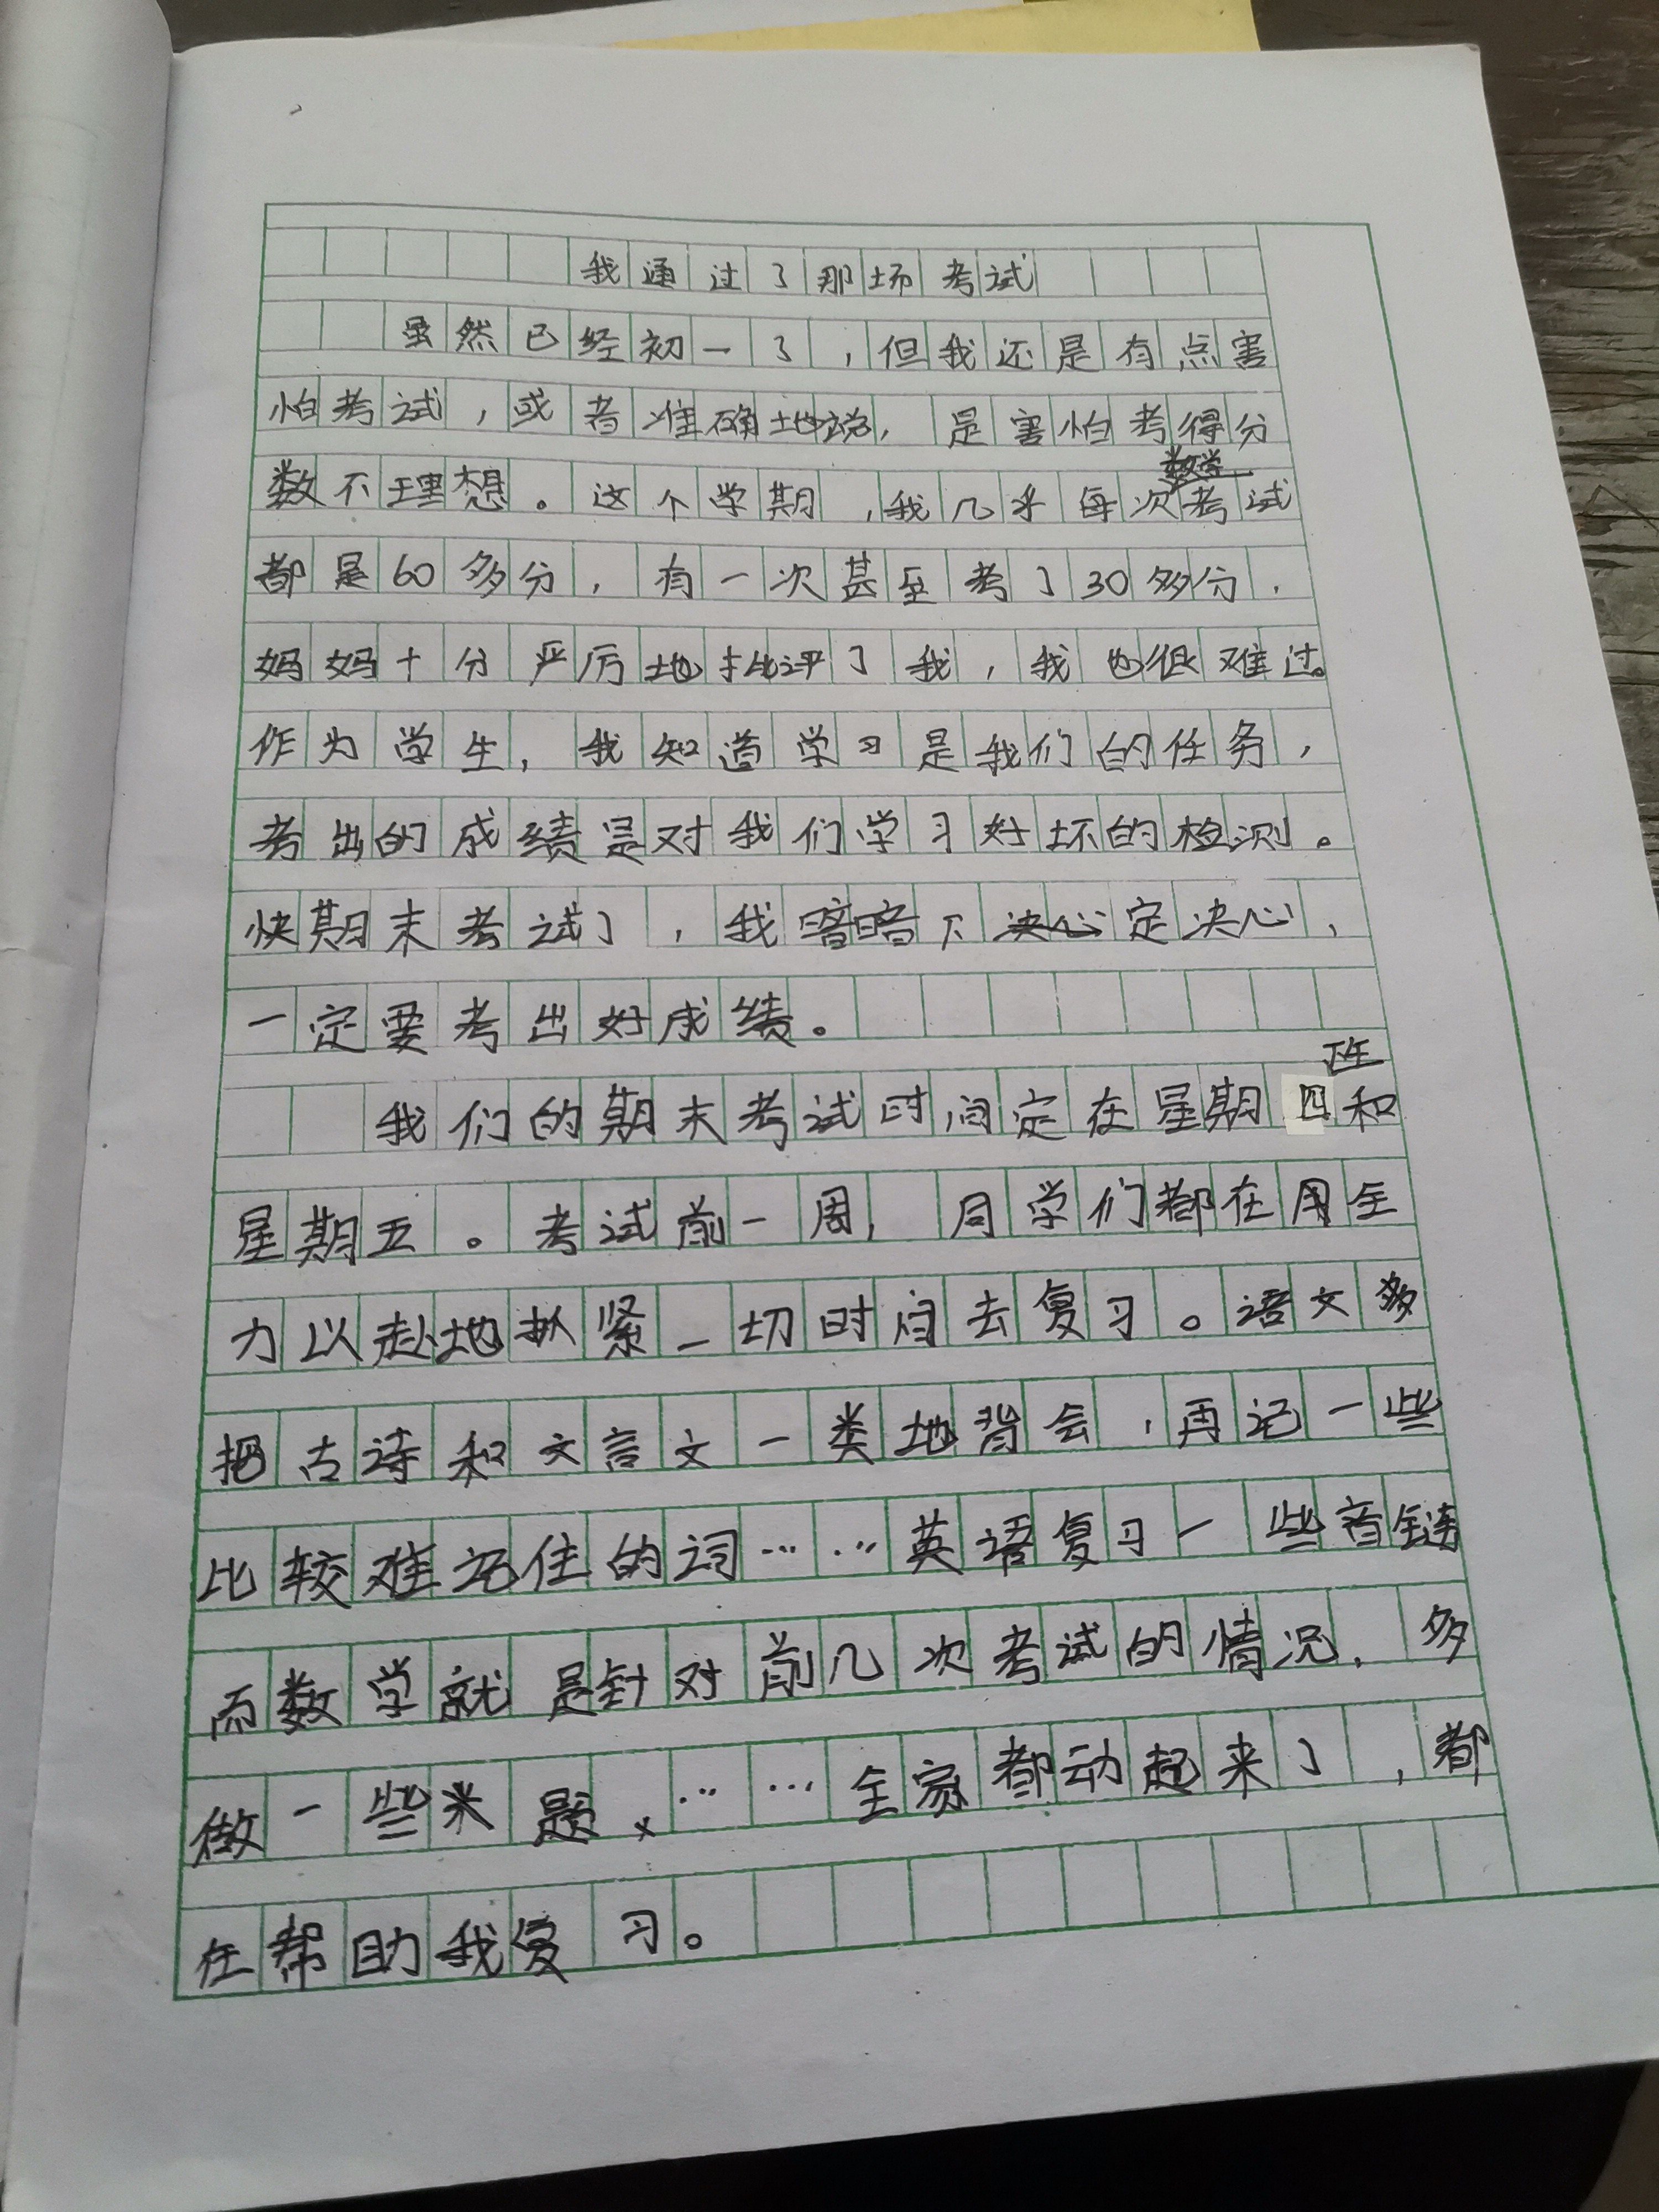 我通过了那场考试
虽然已经初一了，但我还是有点害
怕考试，或者准确地说，是害怕考得分
数不理想。这个学期，我几乎每次数学考试
都是60多分，有一次甚至考了30多分，
妈妈十分严厉地批评了我，我也很难过。
作为学生，我知道学习是我们的任务，
考出的成绩是对我们学习好坏的检测。
快期末考试了，我暗暗下定决心，
一定要考出好成绩。
我们的期末考试时间定在星期四下午和
星期五。考试前一周，同学们都在用全
力以赴地抓紧一切时间去复习。语文多
把古诗和文言文一类地背会，再记一些
比较难记住的词……英语复习一些音
而数学就是针对前几次考试的情况，多
做一些类题、……全家都动起来了，都
在帮助我复习。